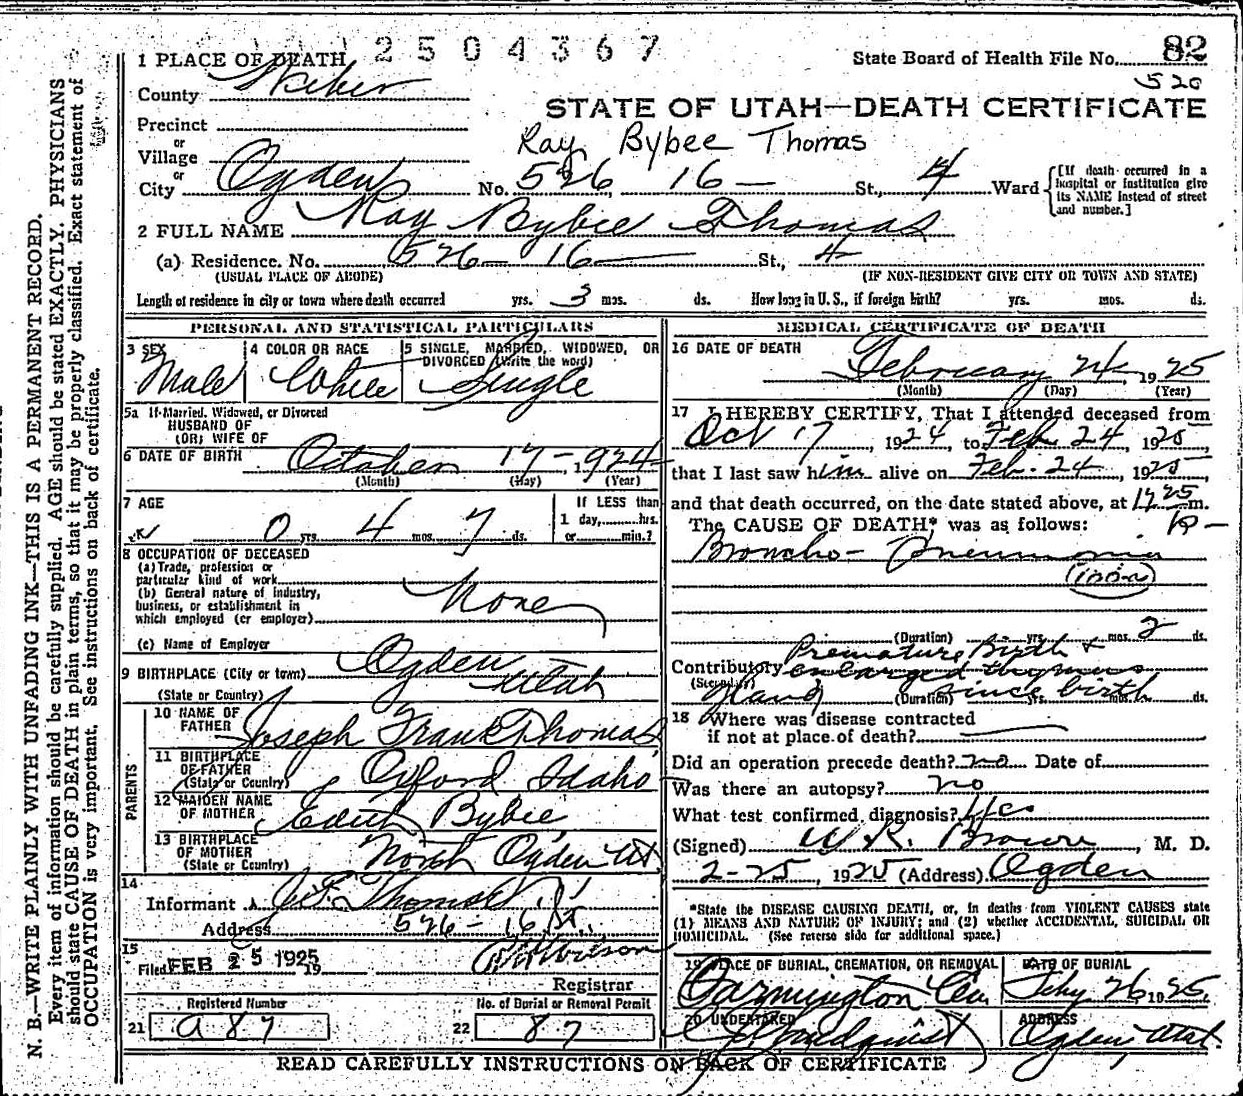 2 5 0 4 3 6 7
1 PLACE OF DEATH
State Board of Health File No. 82
520
County Weber
STATE OF UTAH—DEATH CERTIFICATE
Precinct
or
Village
Ray Bybee Thomas
or
City Ogden No. 526 16 — St., 4 Ward
[If death occurred in a hospital or institution give its NAME instead of street and number.]
2 FULL NAME Ray Bybee Thomas
(a) Residence. No. 526 — 16 — St., 4
(USUAL PLACE OF ABODE) (IF NON-RESIDENT GIVE CITY OR TOWN AND STATE)
Length of residence in city or town where death occurred yrs. 3 mos. ds. How long in U. S., if foreign birth? yrs. mos. ds.
PERSONAL AND STATISTICAL PARTICULARS
3 SEX Male
4 COLOR OR RACE White
5 SINGLE, MARRIED, WIDOWED, OR DIVORCED (Write the word) Single
5a If Married, Widowed, or Divorced
HUSBAND OF
(OR) WIFE OF
6 DATE OF BIRTH October 17 — 1924
(Month) (Day) (Year)
7 AGE
0 yrs. 4 mos. 7 ds.
If LESS than
1 day,........hrs.
or........min.?
8 OCCUPATION OF DECEASED
(a) Trade, profession or
particular kind of work
(b) General nature of Industry,
business, or establishment in
which employed (or employer)
None
(c) Name of Employer
9 BIRTHPLACE (City or town) Ogden
(State or Country) Utah
PARENTS
10 NAME OF
FATHER Joseph Frank Thomas
11 BIRTHPLACE
OF FATHER
(State or Country) Oxford Idaho
12 MAIDEN NAME
OF MOTHER Edith Bybee
13 BIRTHPLACE
OF MOTHER
(State or Country) North Ogden Ut
14
Informant J. F. Thomas
Address 526 — 16 St.
15
Filed FEB 25 1925 19
Registrar
Registered Number
21 a 87
No. of Burial or Removal Permit
22 87
MEDICAL CERTIFICATE OF DEATH
16 DATE OF DEATH
February 24, 1925
(Month) (Day) (Year)
17 I HEREBY CERTIFY, That I attended deceased from
Oct 17, 1924 to Feb 24, 1925
that I last saw him alive on Feb. 24, 1925
and that death occurred, on the date stated above, at m.
The CAUSE OF DEATH* was as follows:
Broncho-Pneumonia
(100-a)
(Duration) yrs. mos. 2 ds.
Premature Birth &
Contributory enlarged thymus
(Secondary) gland (Duration) since birth yrs. mos. ds.
18 Where was disease contracted
if not at place of death?
Did an operation precede death? no Date of
Was there an autopsy? no
What test confirmed diagnosis?
(Signed) W. R. Brown, M. D.
2-25, 1925 (Address) Ogden
*State the DISEASE CAUSING DEATH, or, in deaths from VIOLENT CAUSES state
(1) MEANS AND NATURE OF INJURY; and (2) whether ACCIDENTAL, SUICIDAL OR
HOMICIDAL. (See reverse side for additional space.)
19 PLACE OF BURIAL, CREMATION, OR REMOVAL
Farmington
DATE OF BURIAL
Feby. 26 1925
20 UNDERTAKER
ADDRESS
Ogden, Utah.
READ CAREFULLY INSTRUCTIONS ON BACK OF CERTIFICATE
N. B.—WRITE PLAINLY WITH UNFADING INK—THIS IS A PERMANENT RECORD.
Every item of information should be carefully supplied. AGE should be stated EXACTLY. PHYSICIANS
should state CAUSE OF DEATH in plain terms, so that it may be properly classified. Exact statement of
OCCUPATION is very important. See instructions on back of certificate.